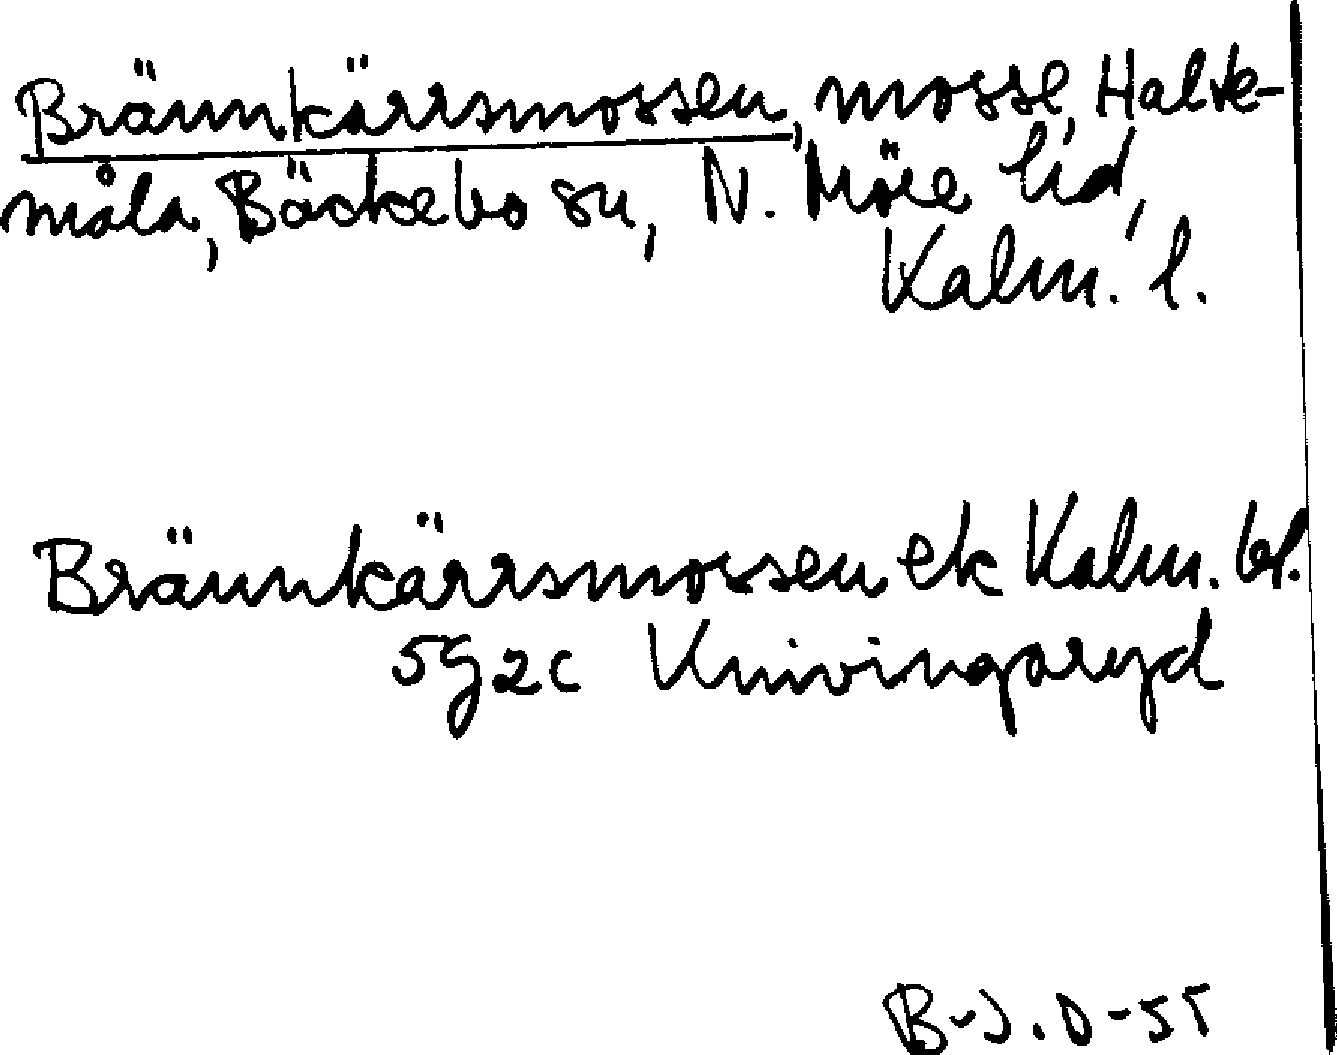 Brännkärrsmossen, mosse, Halte-
måla, Bäckebo sn, N. Möre hd,
Kalm. l.
Brännkärrsmossen ek Kalm. bl.
5G2c Knivingaryd
B-J.O-55